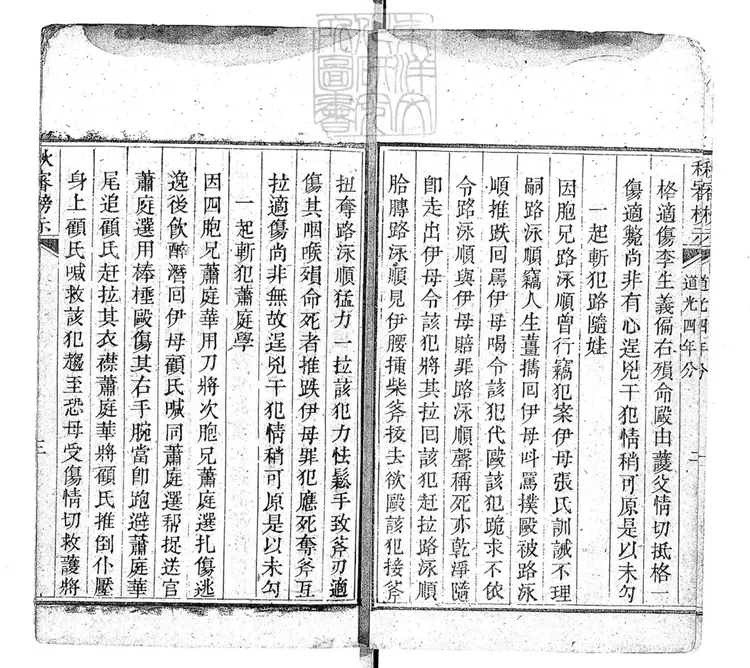 秋審榜示
道光四年分
二
格適傷李生義偏右殞命毆由護父情切抵格一
傷適斃尚非有心逞兇干犯情稍可原是以未勾
一起斬犯路隨娃
因胞兄路泳順曾行竊犯案伊母張氏訓誡不理
嗣路泳順竊人生薑攜回伊母呌罵撲毆被路泳
順推跌回罵伊母喝令該犯代毆該犯跪求不依
令路泳順與伊母賠罪路泳順聲稱死亦乾淨隨
卽走出伊母令該犯將其拉回該犯赶拉路泳順
胎膊路泳順見伊腰揷柴斧掖去欲毆該犯接斧
扭奪路泳順猛力一拉該犯力怯鬆手致斧刃適
傷其咽喉殞命死者推跌伊母罪犯應死奪斧互
拉適傷尚非無故逞兇干犯情稍可原是以未勾
一起斬犯蕭庭學
因四胞兄蕭庭華用刀將次胞兄蕭庭選扎傷逃
逸後飲醉潛回伊母顧氏喊同蕭庭選帮捉送官
蕭庭選用棒棰毆傷其右手腕當卽跑避蕭庭華
尾追顧氏赶拉其衣襟蕭庭華將顧氏推倒仆壓
身上顧氏喊救該犯趨至恐母受傷情切救護將
秋審榜示
三